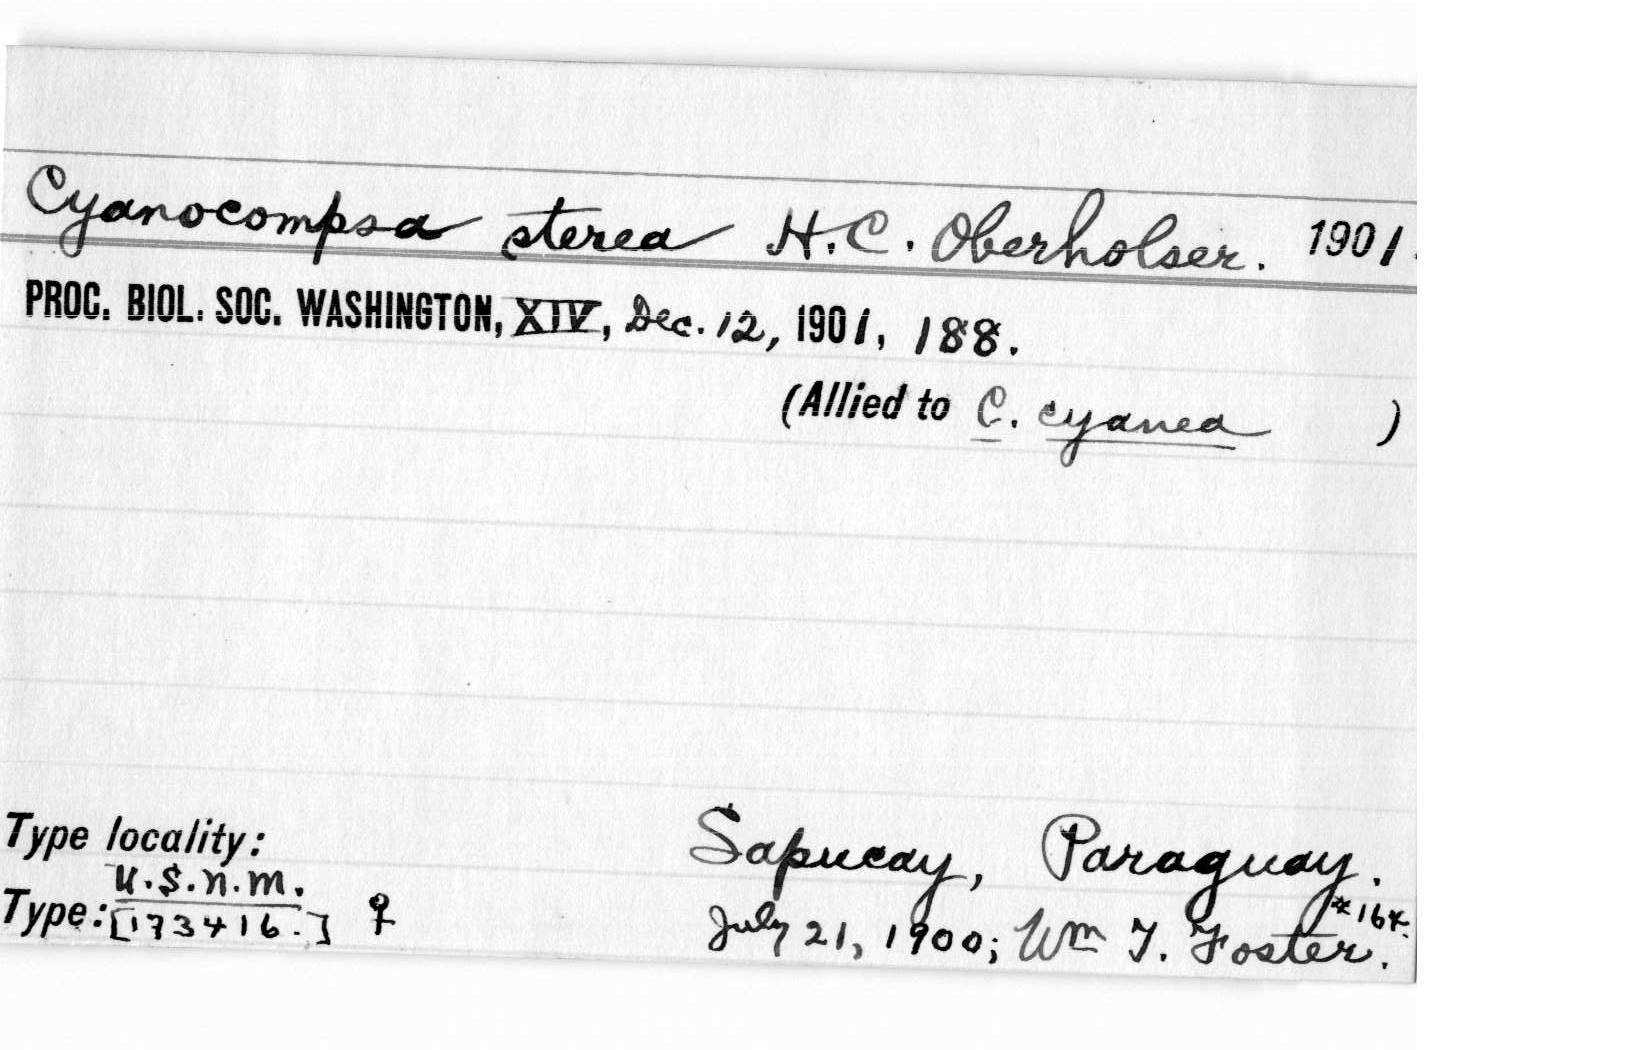 Cyanocompsa sterea H.C. Oberholser. 1901.
PROC. BIOL. SOC. WASHINGTON, XIV, Dec. 12, 1901, 188.
(Allied to C. cyanea )
Type locality: Sapucay, Paraguay.
U.S.N.M.
Type: [173416.] ♀ July 21, 1900; Wm T. Foster. #164.